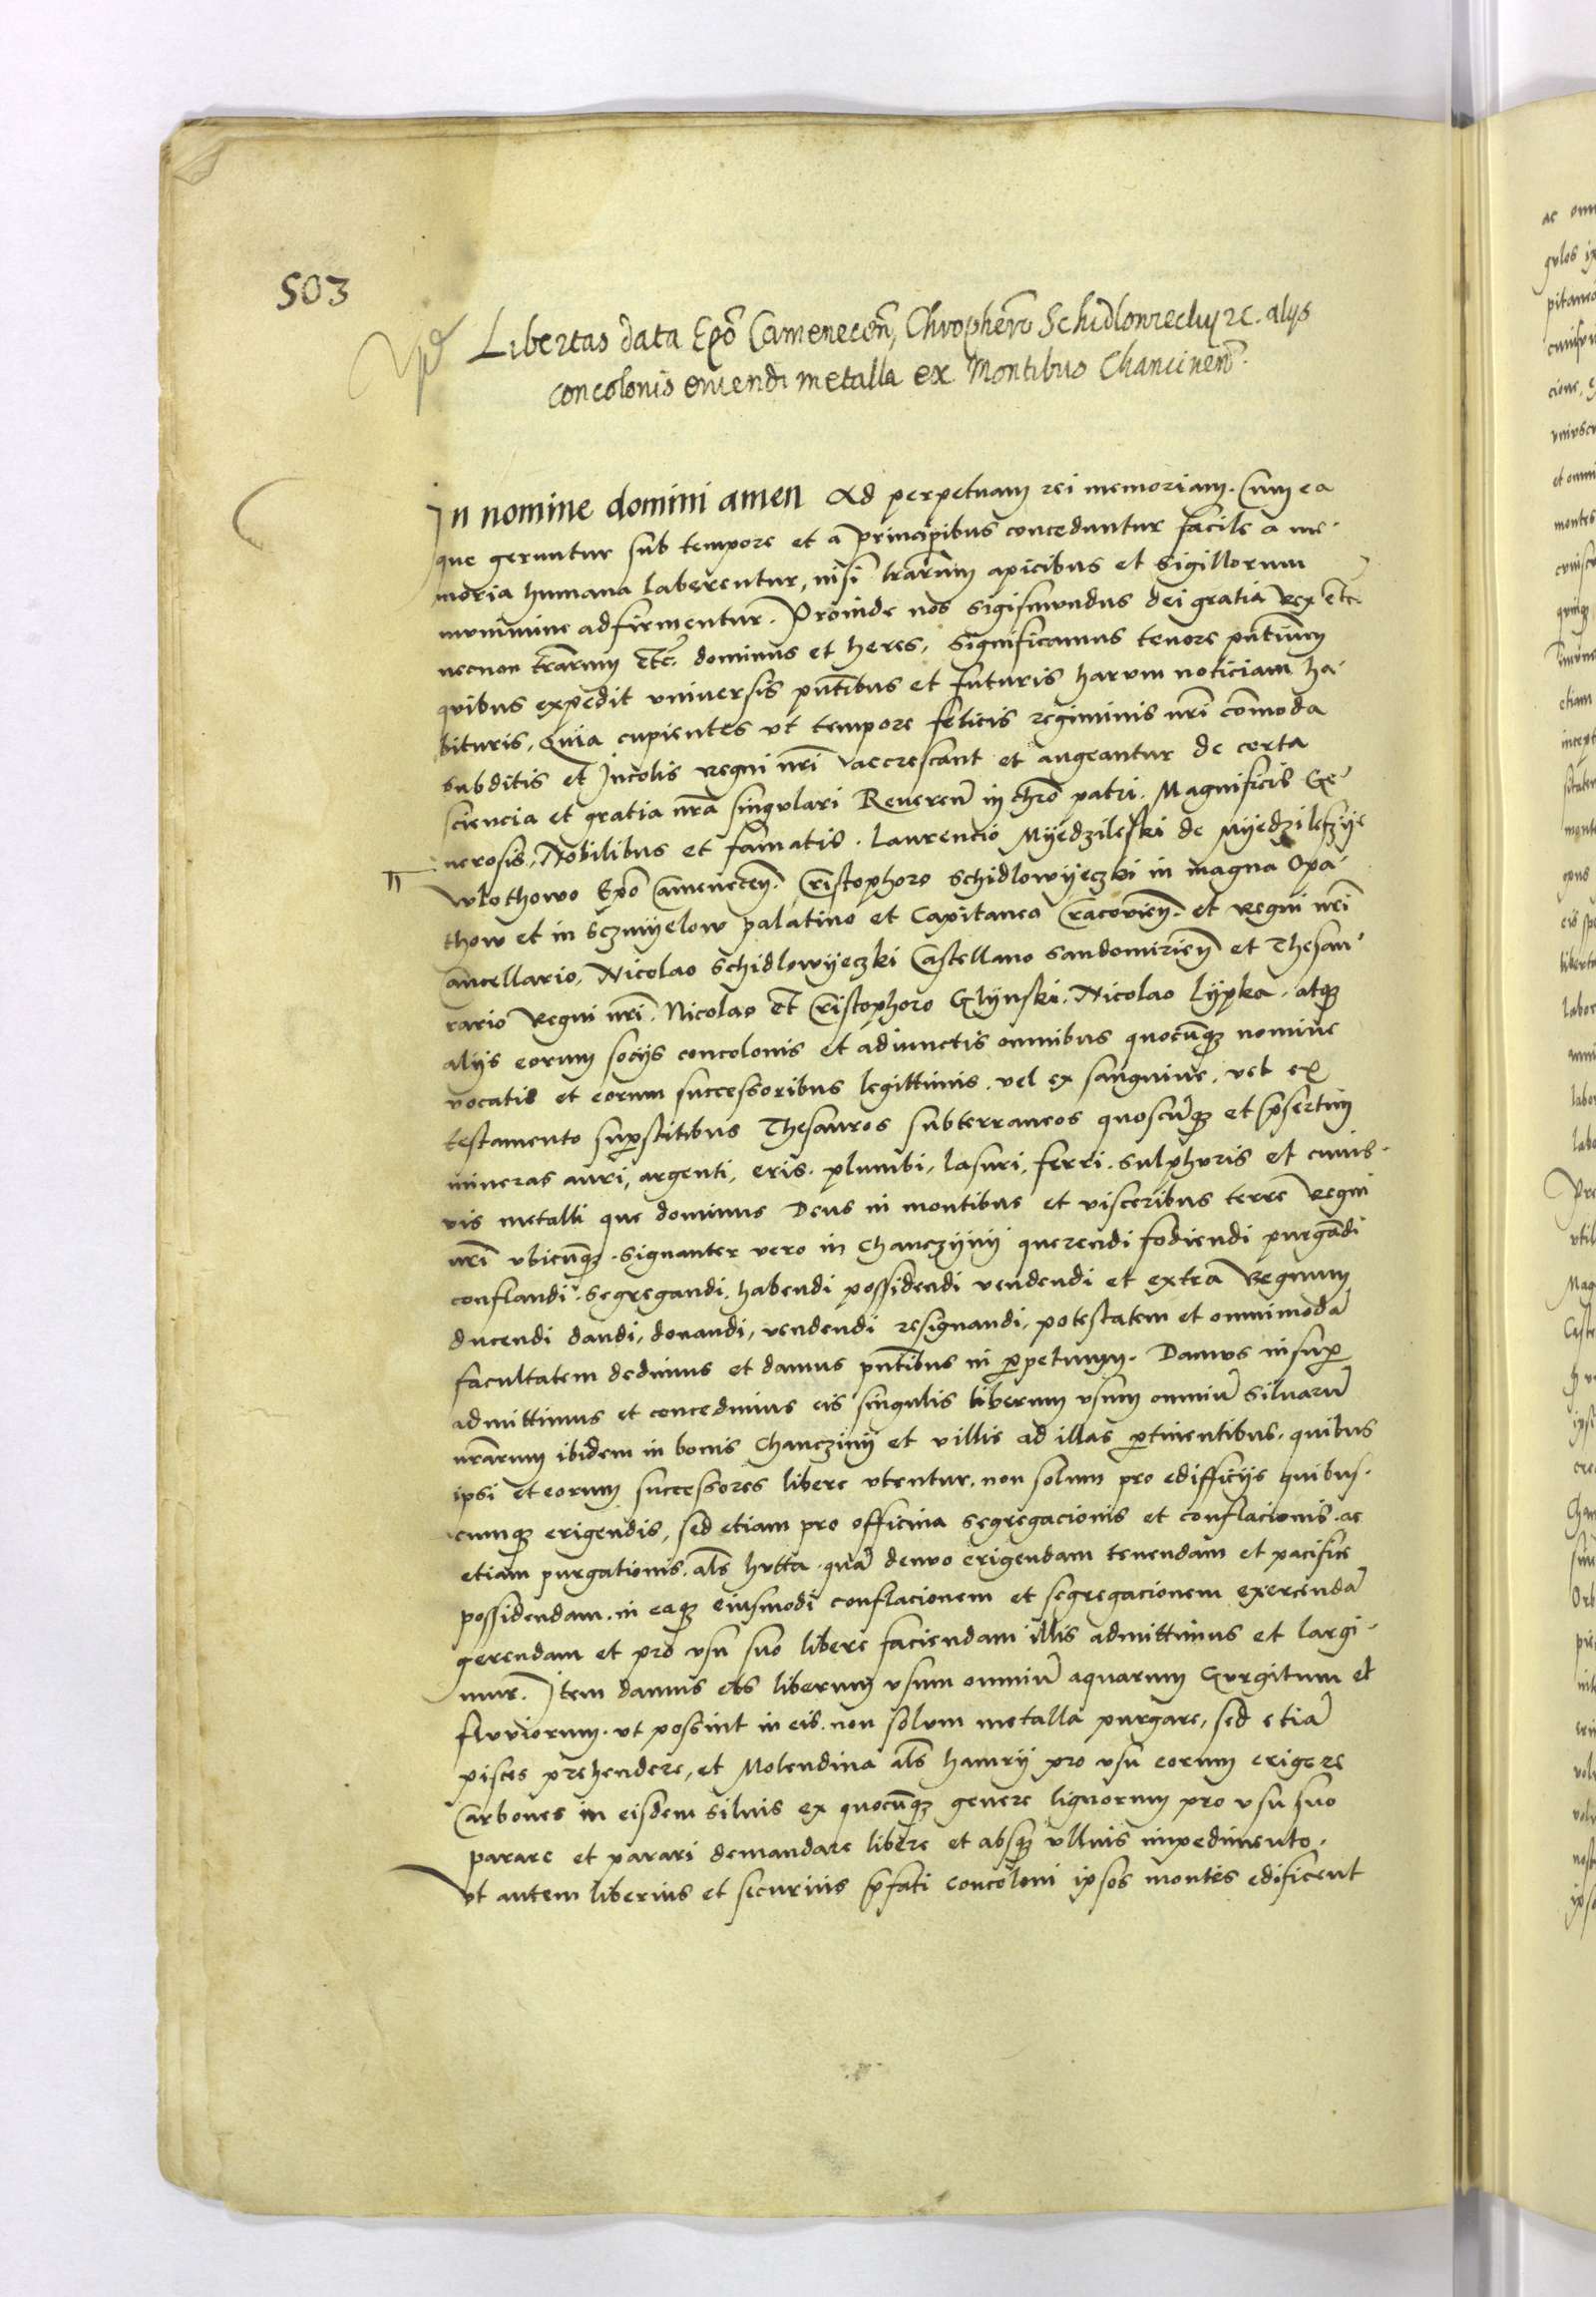 503
Libertas data Epo Camenecen, Chrophero Schidlowieczky etc. alys
concolonis eruendi metalla ex Montibus Chancinen.
In nomine domini amen Ad perpetuam rei memoriam. Cum ea
que geruntur sub tempore et a principibus conceduntur facile a me-
moria humana laberentur, nisi lrarum apicibus et sigillorum
munimine adfirmentur. Proinde nos Sigismundus dei gratia Rex etc.
necnon trarum etc. dominus et heres, significamus tenore pntium
quibus expedit universis pntibus et futuris harum noticiam ha-
bituris, Quia cupientes ut tempore felicis regiminis nri comoda
subditis et Incolis regni nri accrescant et augeantur de certa
sciencia et gratia nra singulari Reveren in chro patri. Magnificis Ge-
nerosis, Nobilibus et famatis. Laurencio Myedzileski de Myedzileszye
Wlothowo Epo Camenecen. Cristophoro Schidlowyeczki in magna Opa-
thow et in Sczmyelow palatino et Capitaneo Cracovien. et regni nri
Cancellario, Nicolao Schidlowyeczki Castellano Sandomirien et Thesau-
rario Regni nri. Nicolao et Cristophoro Glynski. Nicolao Lypka. atq
alys eorum socys concolonis et adiunctis omnibus quocunq nomine
vocatis et eorum successoribus legittimis. vel ex sanguine. vel ex
testamento superstitibus Thesauros subterraneos quoscunq et psertim
mineras auri, argenti, eris. plumbi, lasuri, ferri. sulphuris et cuius-
vis metalli que dominus Deus in montibus et visceribus terre Regni
nri ubicunq. signanter vero in Chanczyny querendi fodiendi purgandi
conflandi. segregandi. habendi possidendi vendendi et extra Regnum
ducendi dandi, donandi, vendendi resignandi, potestatem et omnimoda
facultatem dedimus et damus pntibus in perpetuum. Damus insuper
admittimus et concedimus eis singulis liberum usum omniu silvaru
nrarum ibidem in bonis Chancziny et villis ad illas pertinentibus. quibus
ipsi et eorum successores libere utentur. non solum pro edifficiis quibus-
cumq erigendis, sed etiam pro officina segregacionis et conflacionis. ac
etiam purgationis. als hutta. qua denuo erigendam tenendam et pacifice
possidendam. in eaq eiusmodi conflacionem et segregacionem exercenda
gerendam et pro usu suo libere faciendam illis admittimus et largi-
mur. Item damus eis liberum usum omniu aquarum Gurgitum et
fluviorum. ut possint in eis. non solum metalla purgare, sed etia
pisces prehendere, et Molendina als hamry pro usu eorum erigere
Carbones in eisdem silvis ex quocunq genere lignorum pro usu suo
parare et parari demandare libere et absq ullius impedimento.
Ut autem liberius et securius pfati concoloni ipsos montes edificent